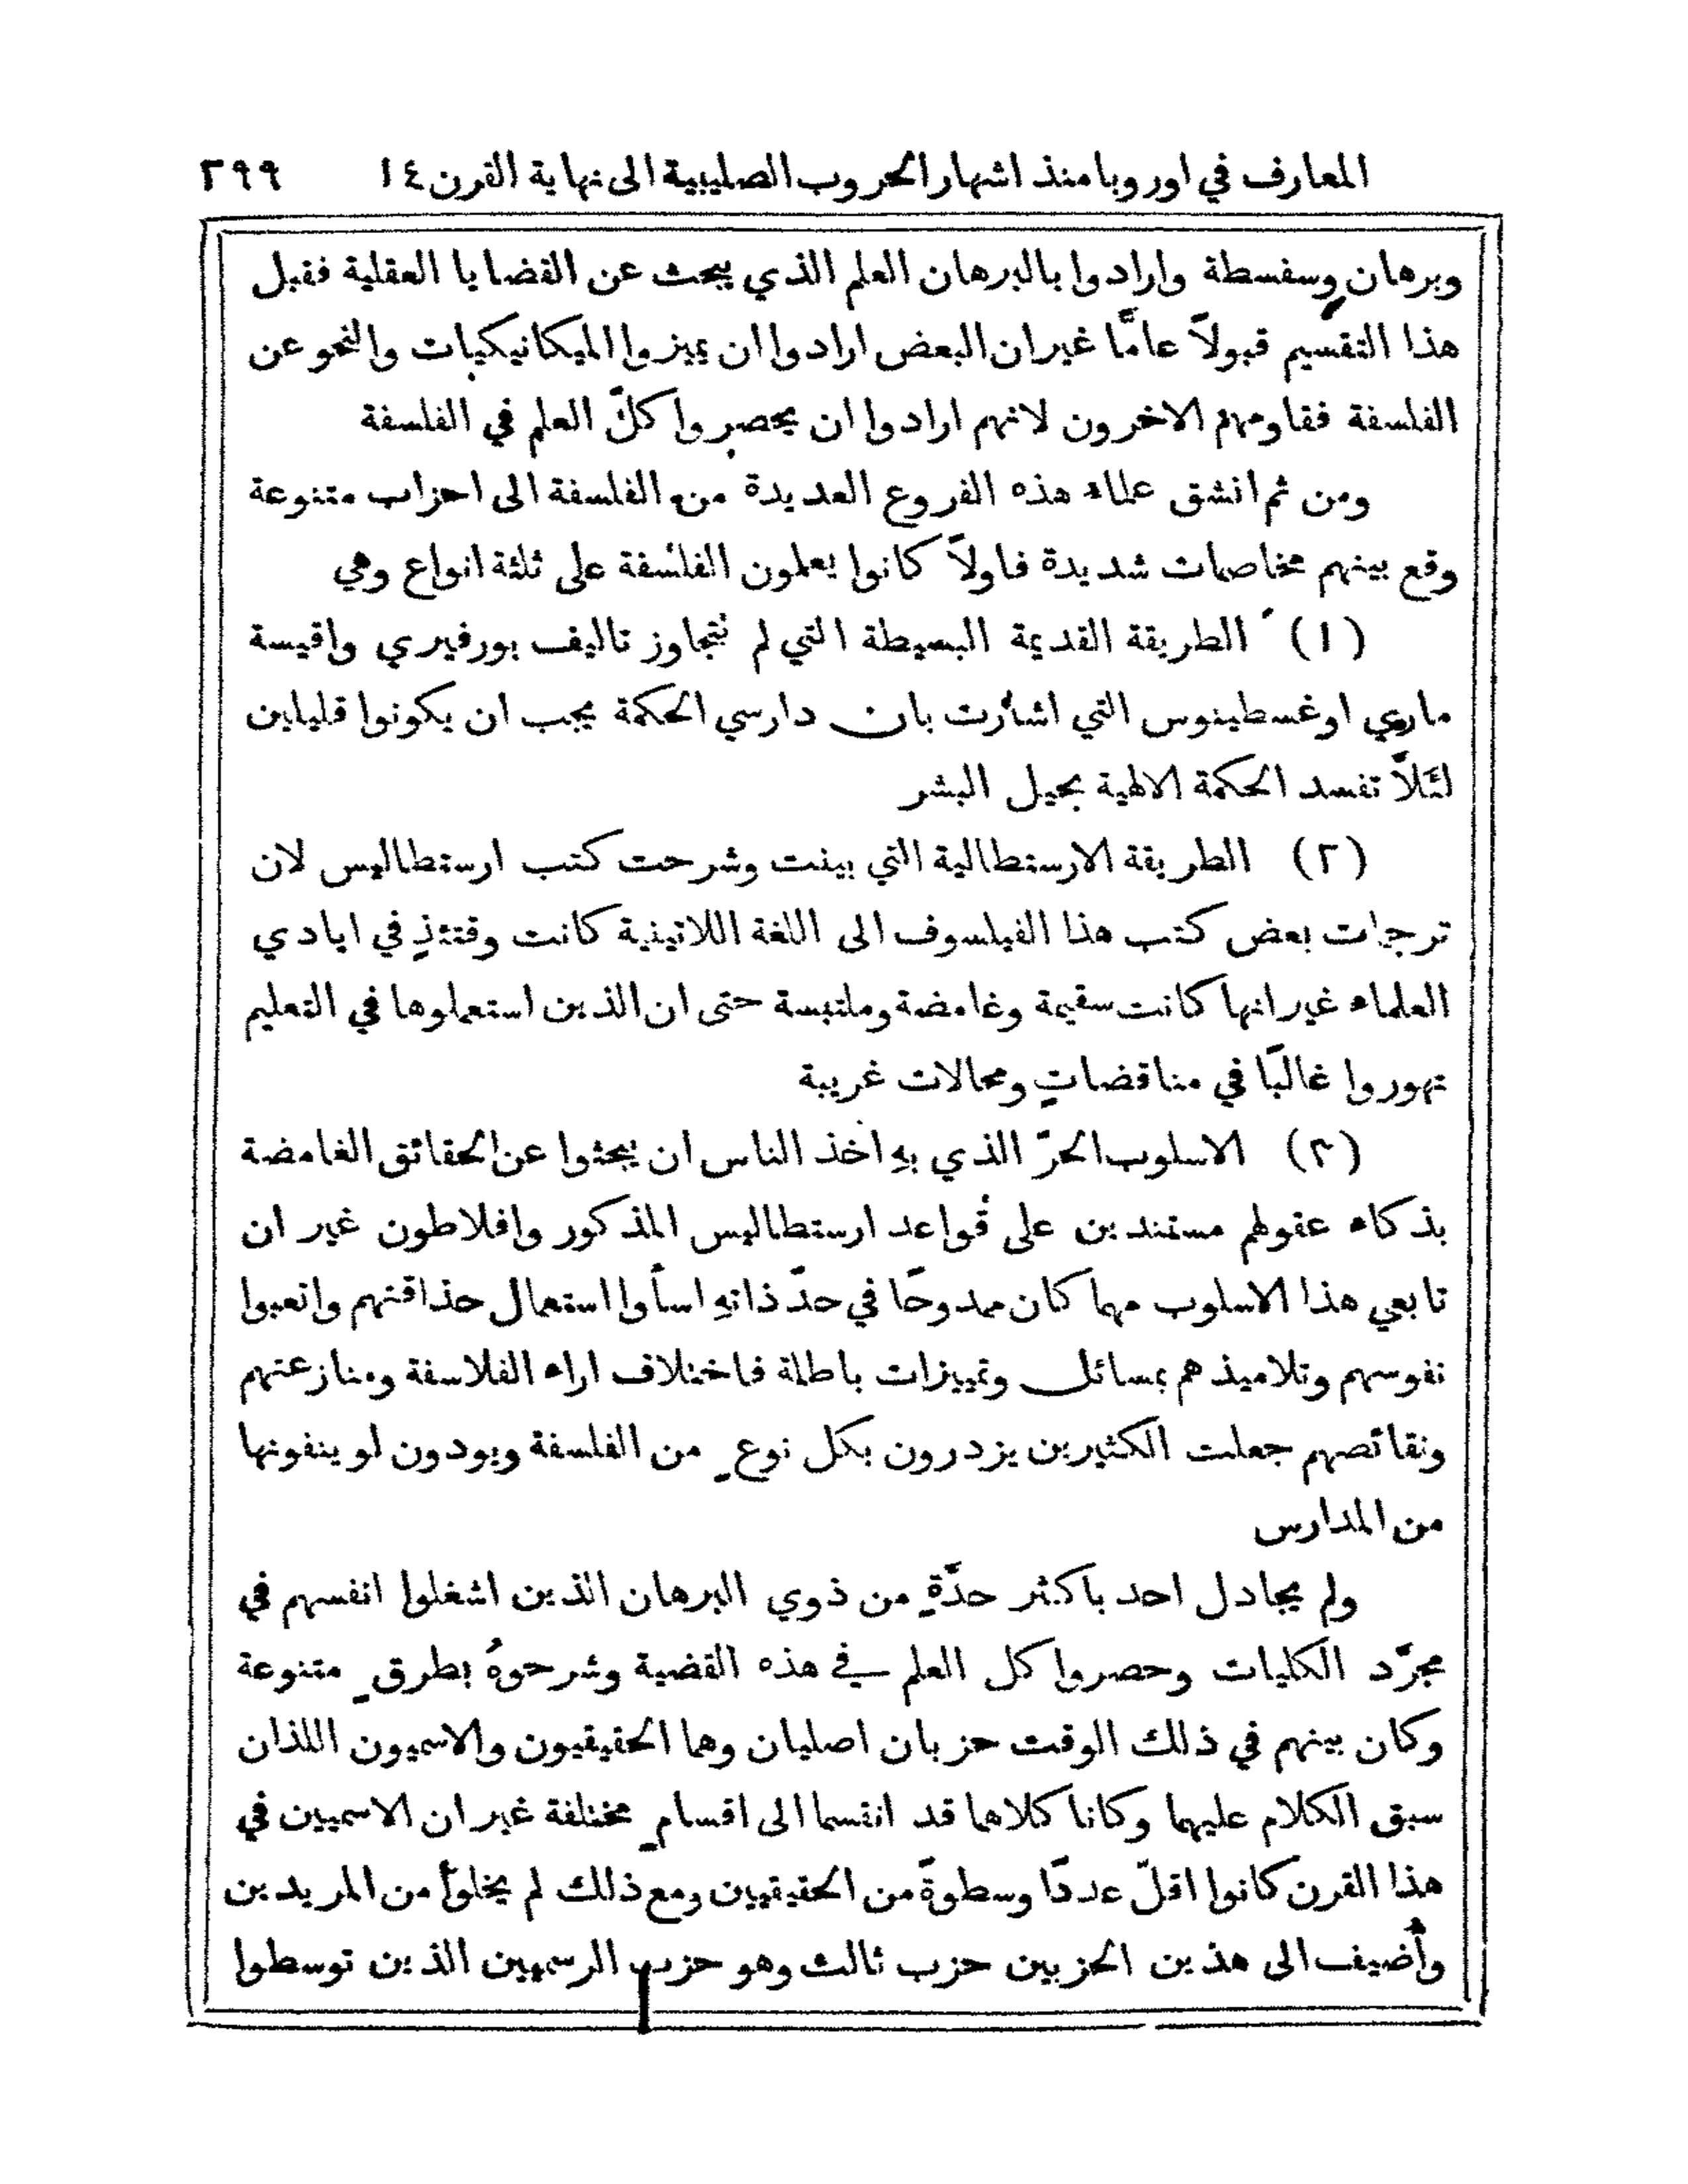 المعارف في اوروبا منذ اشهار الحروب الصليبية الى نهاية القرن ١٤ ٢٩٩
وبرهان وسفسطة وارادوا بالبرهان العلم الذي يبحث عن القضايا العقلية فقبل
هذا التقسيم قبولاً عامًّا غير ان البعض ارادوا ان يميزوا الميكانيكيات والنحو عن
الفلسفة فقاومهم الاخرون لانهم ارادوا ان يحصروا كلّ العلم في الفلسفة
ومن ثم انشق علماء هذه الفروع العديدة من الفلسفة الى احزاب متنوعة
وقع بينهم مخاصمات شديدة فاولاً كانوا يعلمون الفلسفة على ثلثة انواع وهي
(١) الطريقة القديمة البسيطة التي لم تتجاوز تاليف بورفيري واقيسة
ماري اوغسطينوس التي اشارت بان دارسي الحكمة يجب ان يكونوا قليلين
لئلاَّ تفسد الحكمة الالهية بحيل البشر
(٢) الطريقة الارستطالية التي بينت وشرحت كتب ارستطاليس لان
ترجمات بعض كتب هذا الفيلسوف الى اللغة اللاتينية كانت وقتئذٍ في ايادي
العلماء غير انها كانت سقيمة وغامضة وملتبسة حتى ان الذين استعملوها في التعليم
تهوروا غالبًا في مناقضاتٍ ومحالات غريبة
(٣) الاسلوب الحرّ الذي بهِ اخذ الناس ان يبحثوا عن الحقائق الغامضة
بذكاء عقولهم مستندين على قواعد ارستطاليس المذكور وافلاطون غير ان
تابعي هذا الاسلوب مهما كان ممدوحًا في حدّ ذاتهِ اسأوا استعمال حذاقتهم واتعبوا
نفوسهم وتلاميذهم بمسائل وتمييزات باطلة فاختلاف اراء الفلاسفة ومنازعتهم
ونقائصهم جعلت الكثيرين يزدرون بكل نوعٍ من الفلسفة ويودون لو ينفونها
من المدارس
ولم يجادل احد باكثر حدَّةٍ من ذوي البرهان الذين اشغلوا انفسهم في
مجرَّد الكليات وحصروا كل العلم في هذه القضية وشرحوهُ بطرقٍ متنوعة
وكان بينهم في ذلك الوقت حزبان اصليان وهما الحقيقيون والاسميون اللذان
سبق الكلام عليهما وكانا كلاهما قد انقسما الى اقسامٍ مختلفة غير ان الاسميين في
هذا القرن كانوا اقلّ عددًا وسطوةً من الحقيقيين ومع ذلك لم يخلوا من المريدين
وأُضيف الى هذين الحزبين حزب ثالث وهو حزب الرسميين الذين توسطوا